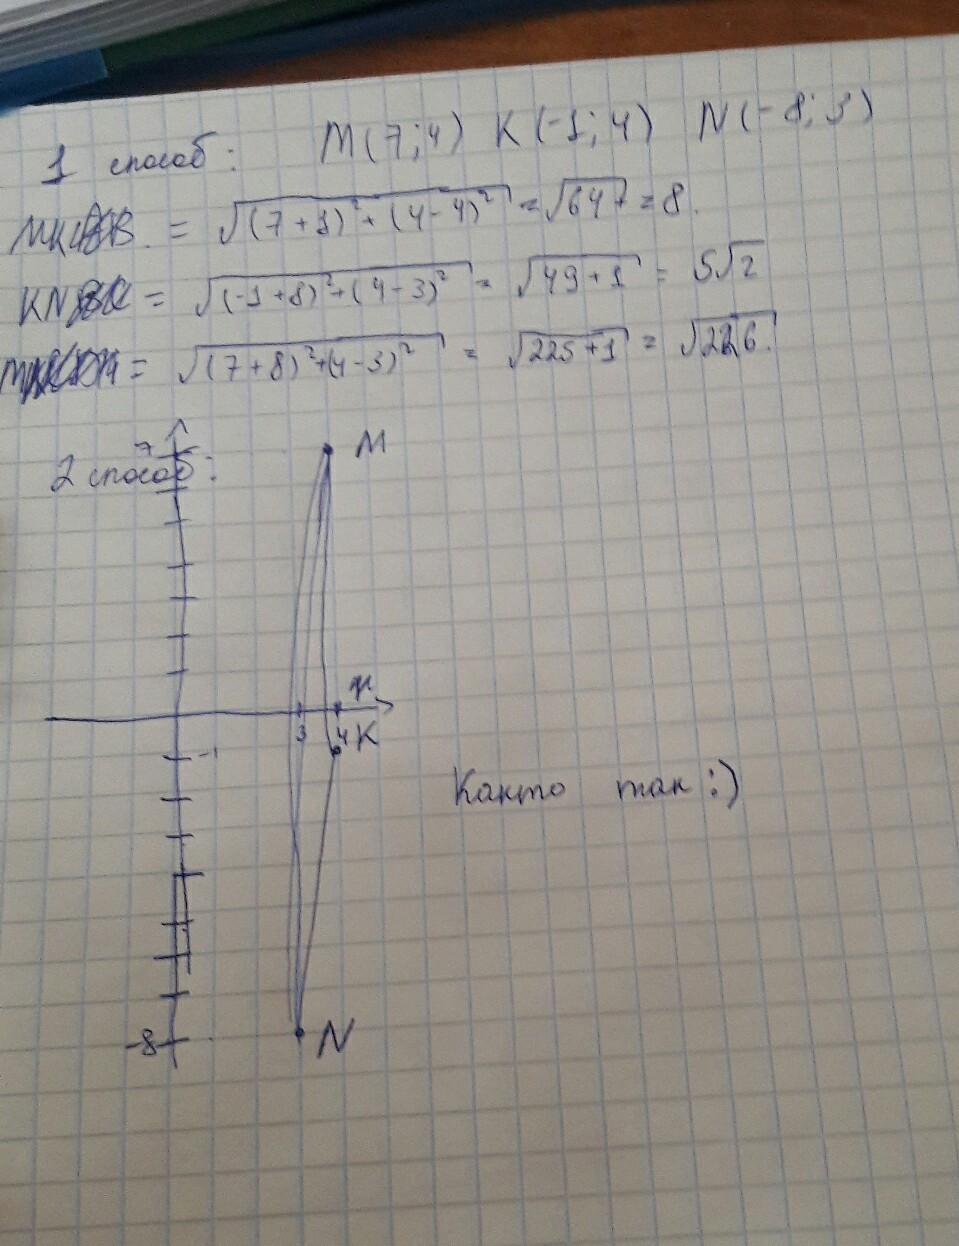 1 способ: M(7;4) K(-1;4) N(-8;3)
MK = √(7+1)²+(4-4)² = √64 = 8.
KN = √(-1+8)²+(4-3)² = √49+1 = 5√2
= √(7+8)²+(4-3)² = √225+1 = √226.
7
M
2 способ:
x
3
4
K
-1
Както так :)
-8
N